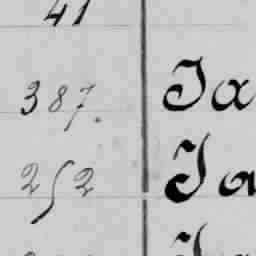 41
387. Ja
252 Ja